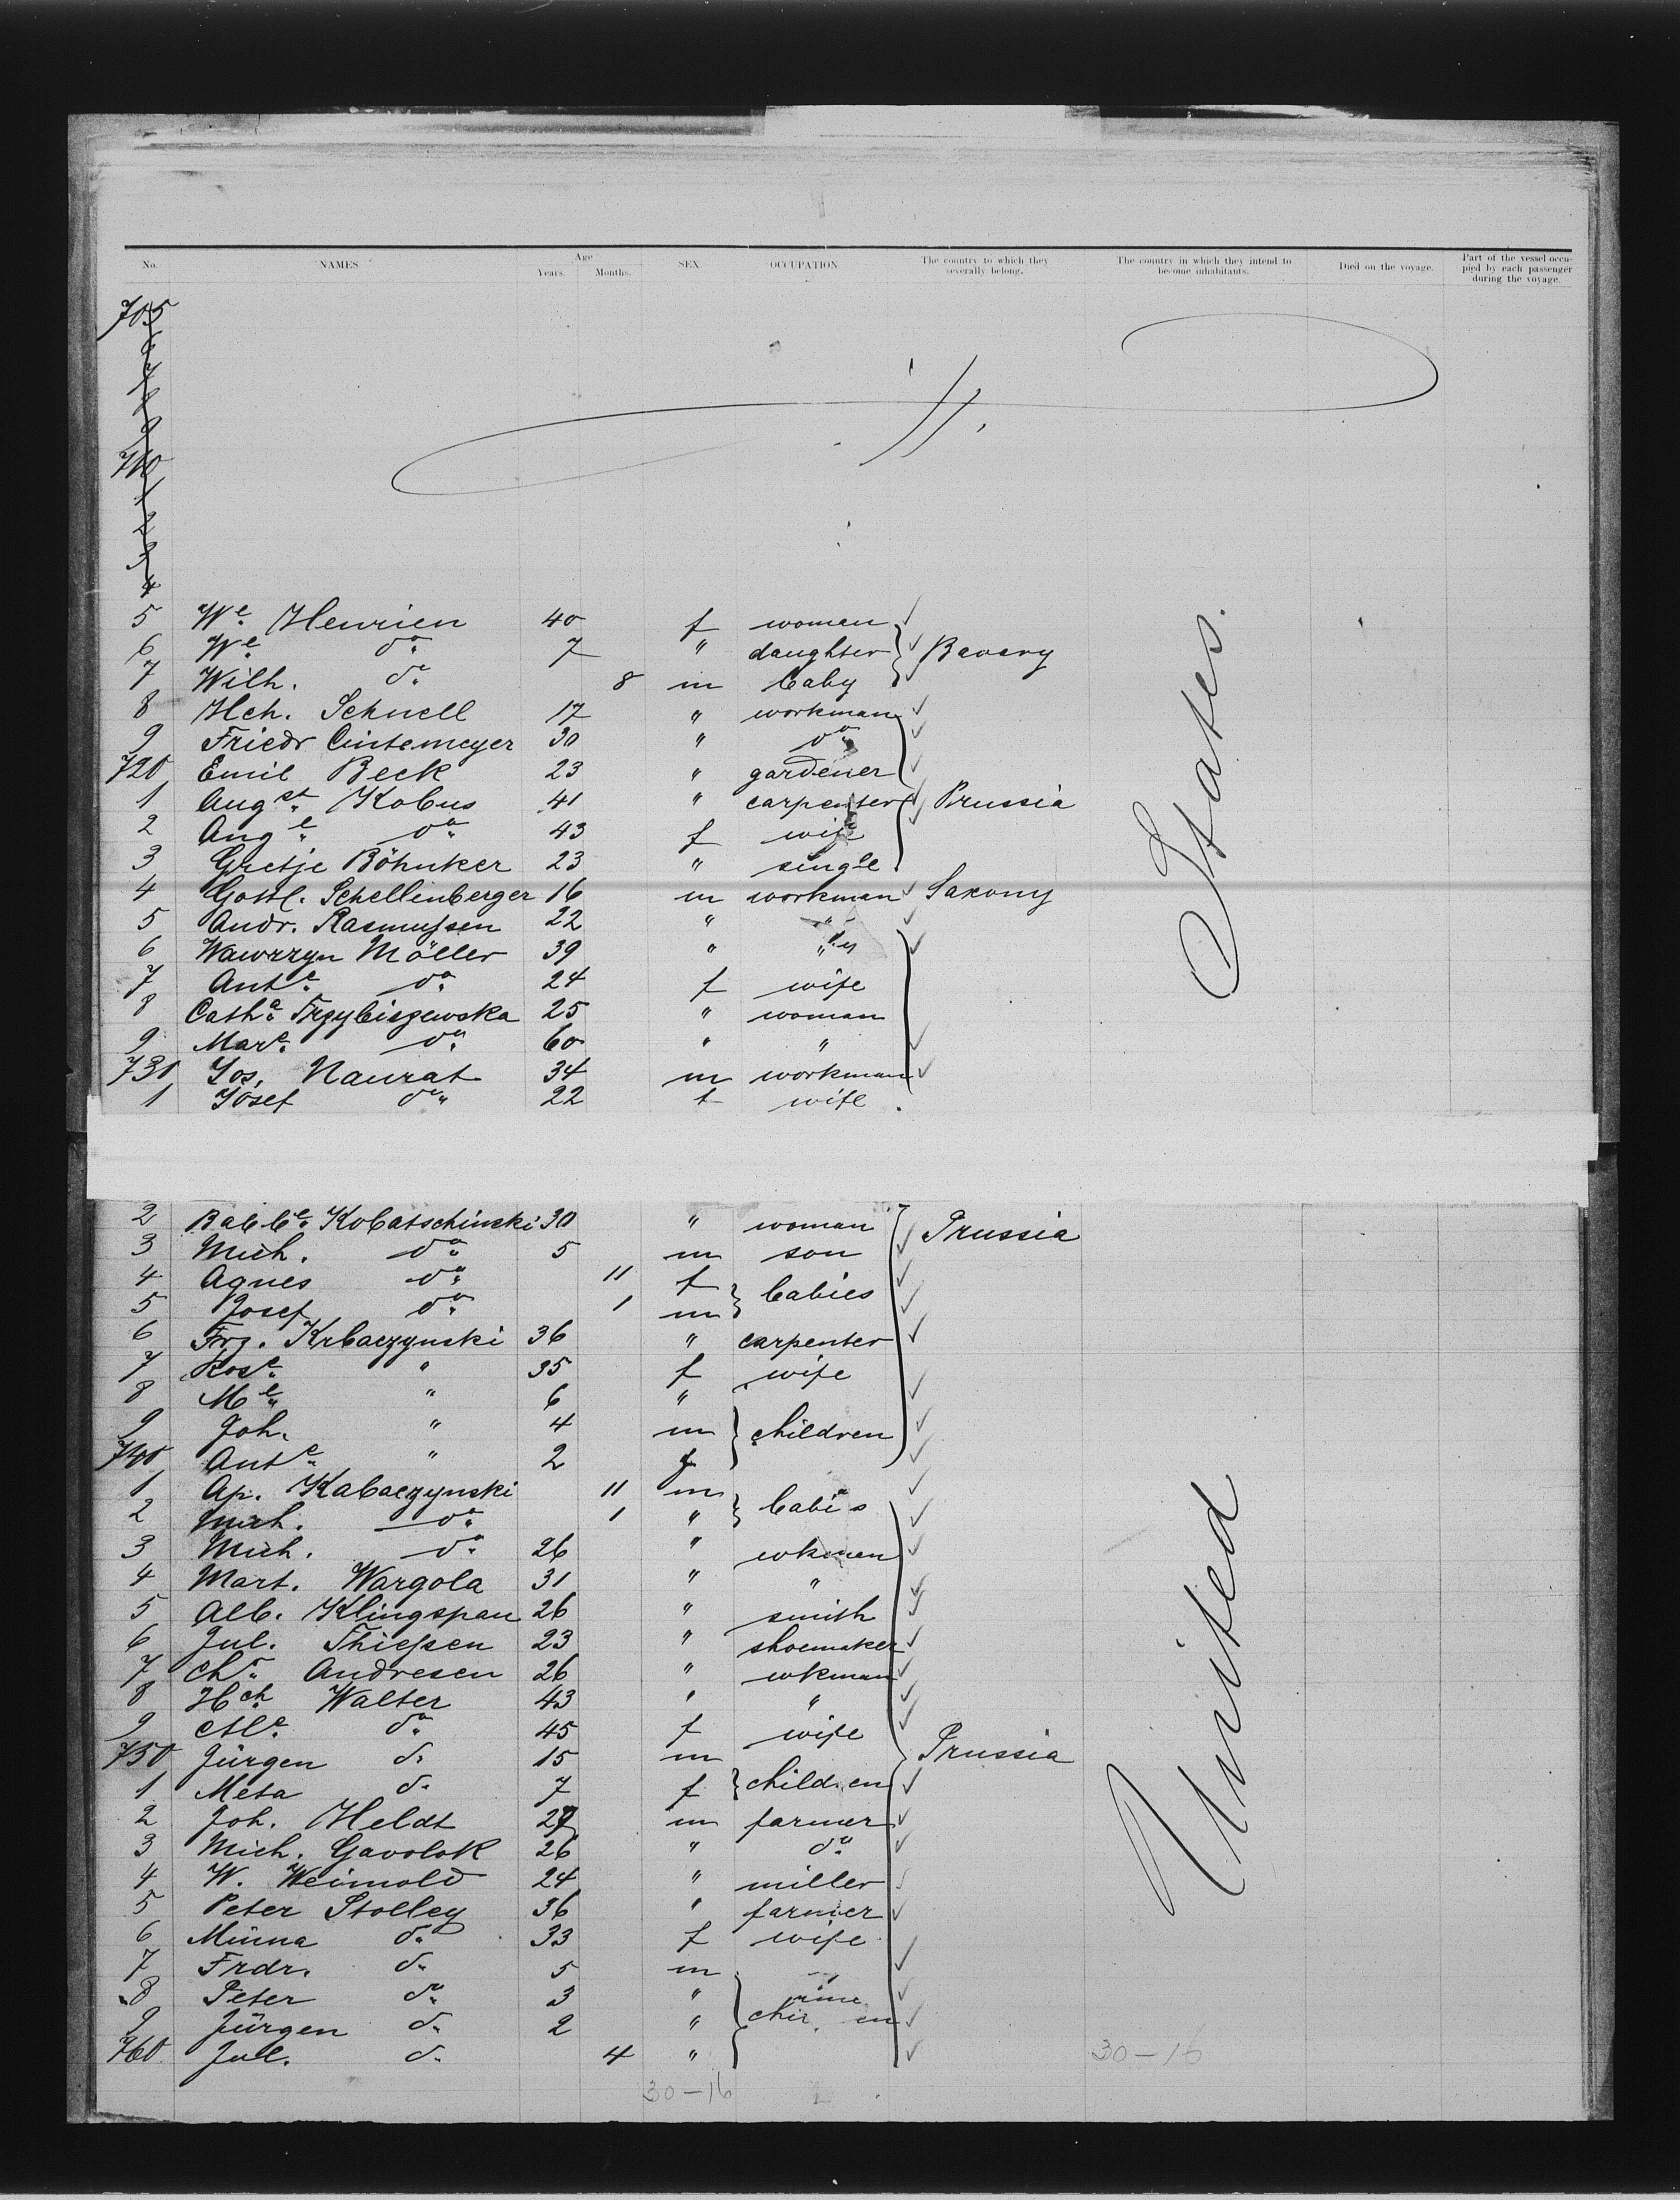 No. NAMES Age Years. Months. SEX. OCCUPATION The country to which they severally belong. The country in which they intend to become inhabitants. Died on the voyage. Part of the vessel occupied by each passenger during the voyage.
705
6
7
8
9
710
1
2
3
4
5 Wе. Henrien 40 f woman
6 We. do. 7 " daughter Bavary
7 Wilh. do. 8 m baby
8 Hch. Schnell 17 " workman
9 Friedr Cintemeyer 30 " do.
720 Emil Beck 23 " gardener
1 Augst. Kobus 41 " carpenter Prussia
2 Ang e. do. 43 f wife
3 Gretje Böhnker 23 " single
4 Gottl. Schellenberger 16 m workman Saxony
5 Andr. Rasmussen 22 " "
6 Wawrzyn Möller 39 " "
7 Ante. do. 24 f wife
8 Cathe. Trzybiszewska 25 " woman
9 Mare. do. 60 " "
730 Jos. Naurat 34 m workman
1 Josef do. 22 f wife
2 Babbe. Kobatschinski 30 " woman Prussia
3 Mich. do. 5 m son
4 Agnes do. 11 f babies
5 Josef do. 1 m
6 Frz. Krbaczynski 36 " carpenter
7 Rose. " 35 f wife
8 Me. " 6 "
9 Joh. " 4 m children
740 Ante. " 2 f
1 Ap. Kabaczynski 11 m babi s
2 Mich. do. 1 "
3 Mich. do. 26 " wkmen
4 Mart. Wargola 31 " "
5 Alb. Klingspan 26 " smith
6 Jul. Thiessen 23 " shoemaker
7 Chr. Andresen 26 " wkman
8 Hch Walter 43 " "
9 Mle. do. 45 f wife
750 Jürgen do. 15 m children Prussia
1 Meta do. 7 f
2 Joh. Heldt 27 m farmer
3 Mich. Gavolok 26 " do.
4 W. Weimold 24 " miller
5 Peter Stolley 36 " farmer
6 Minna do. 33 f wife
7 Frdr. do. 5 m
8 Peter do. 3 "
9 Jürgen do. 2 "
760 Jul. do. 4 "
30-16
30-16
United States.